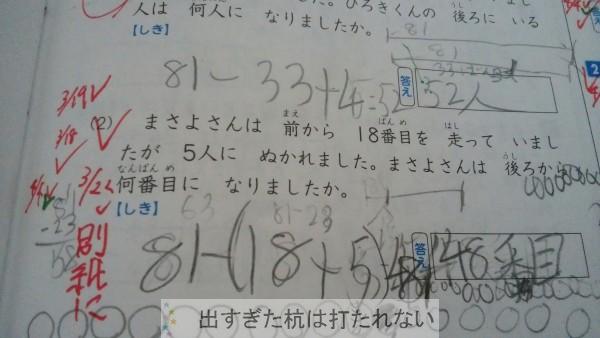 人は 何人に なりましたか。ひろきくんの 後ろに いる
【しき】
81
81
81－33＋4=52
答え
52人
3/19
3/18
(2) まさよさんは 前から 18番目を 走って いまし
たが 5人に ぬかれました。まさよさんは 後ろから
何番目に なりましたか。
3/2
【しき】
63
81-23
81
-23
58
81-(18+5)
答え
48番目
別紙に
出すぎた杭は打たれない